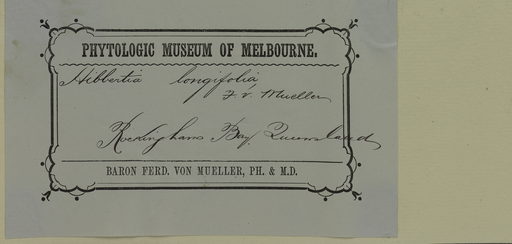 PHYTOLOGIC MUSEUM OF MELBOURNE.
Hibbertia longifolia
F. v. Mueller
Rockinghams Bay, Queensland
BARON FERD. VON MUELLER, PH. & M.D.